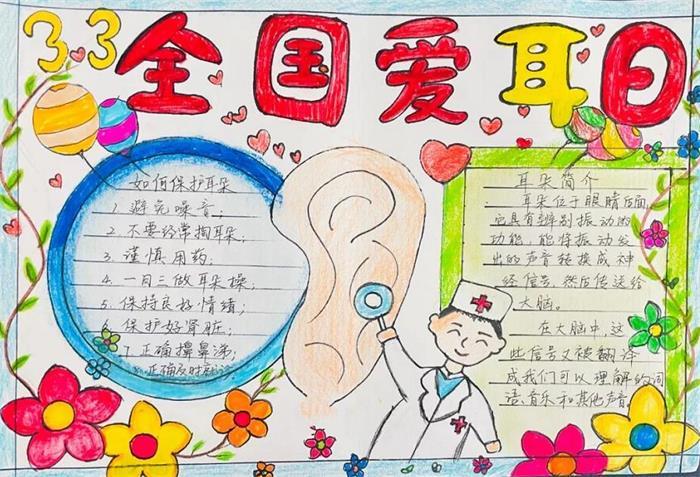 3 3 全国爱耳日
如何保护耳朵
1. 避免噪音；
2. 不要经常掏耳朵；
3. 谨慎用药；
4. 一日三做耳朵操；
5. 保持良好情绪；
6. 保护好肾脏；
7. 正确擤鼻涕；
8. 正确及时就诊
耳朵简介
耳朵位于眼睛后面，
它具有辨别振动的
功能，能将振动发
出的声音转换成神
经信号，然后传送给
大脑。
在大脑中，这
些信号又被翻译
成我们可以理解的词
语、音乐和其他声音。